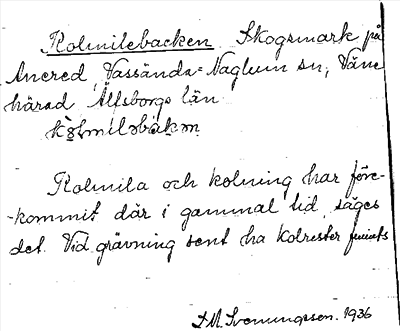 Kolmilebacken Skogsmark på
Ancred, Vassända-Naglum sn, Väne
härad Älfsborgs län
kòlmiləbakən
Kolmila och kolning har före-
-kommit där i gammal tid, säges
det. Vid grävning sent ha Kolrester funnits
F.M. Svenungsson. 1936